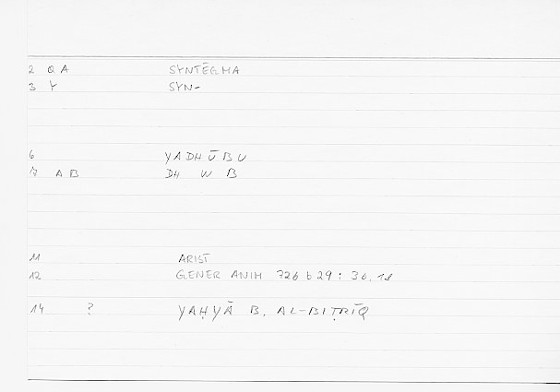 2 QA SYNTĒGMA
3 Y SYN-
6 YADHŪBU
7 AB DH W B
11 ARIST
12 GENER ANIM 726 b 29 : 36.18
14 ? YAḤYĀ B. AL-BIṬRĪQ